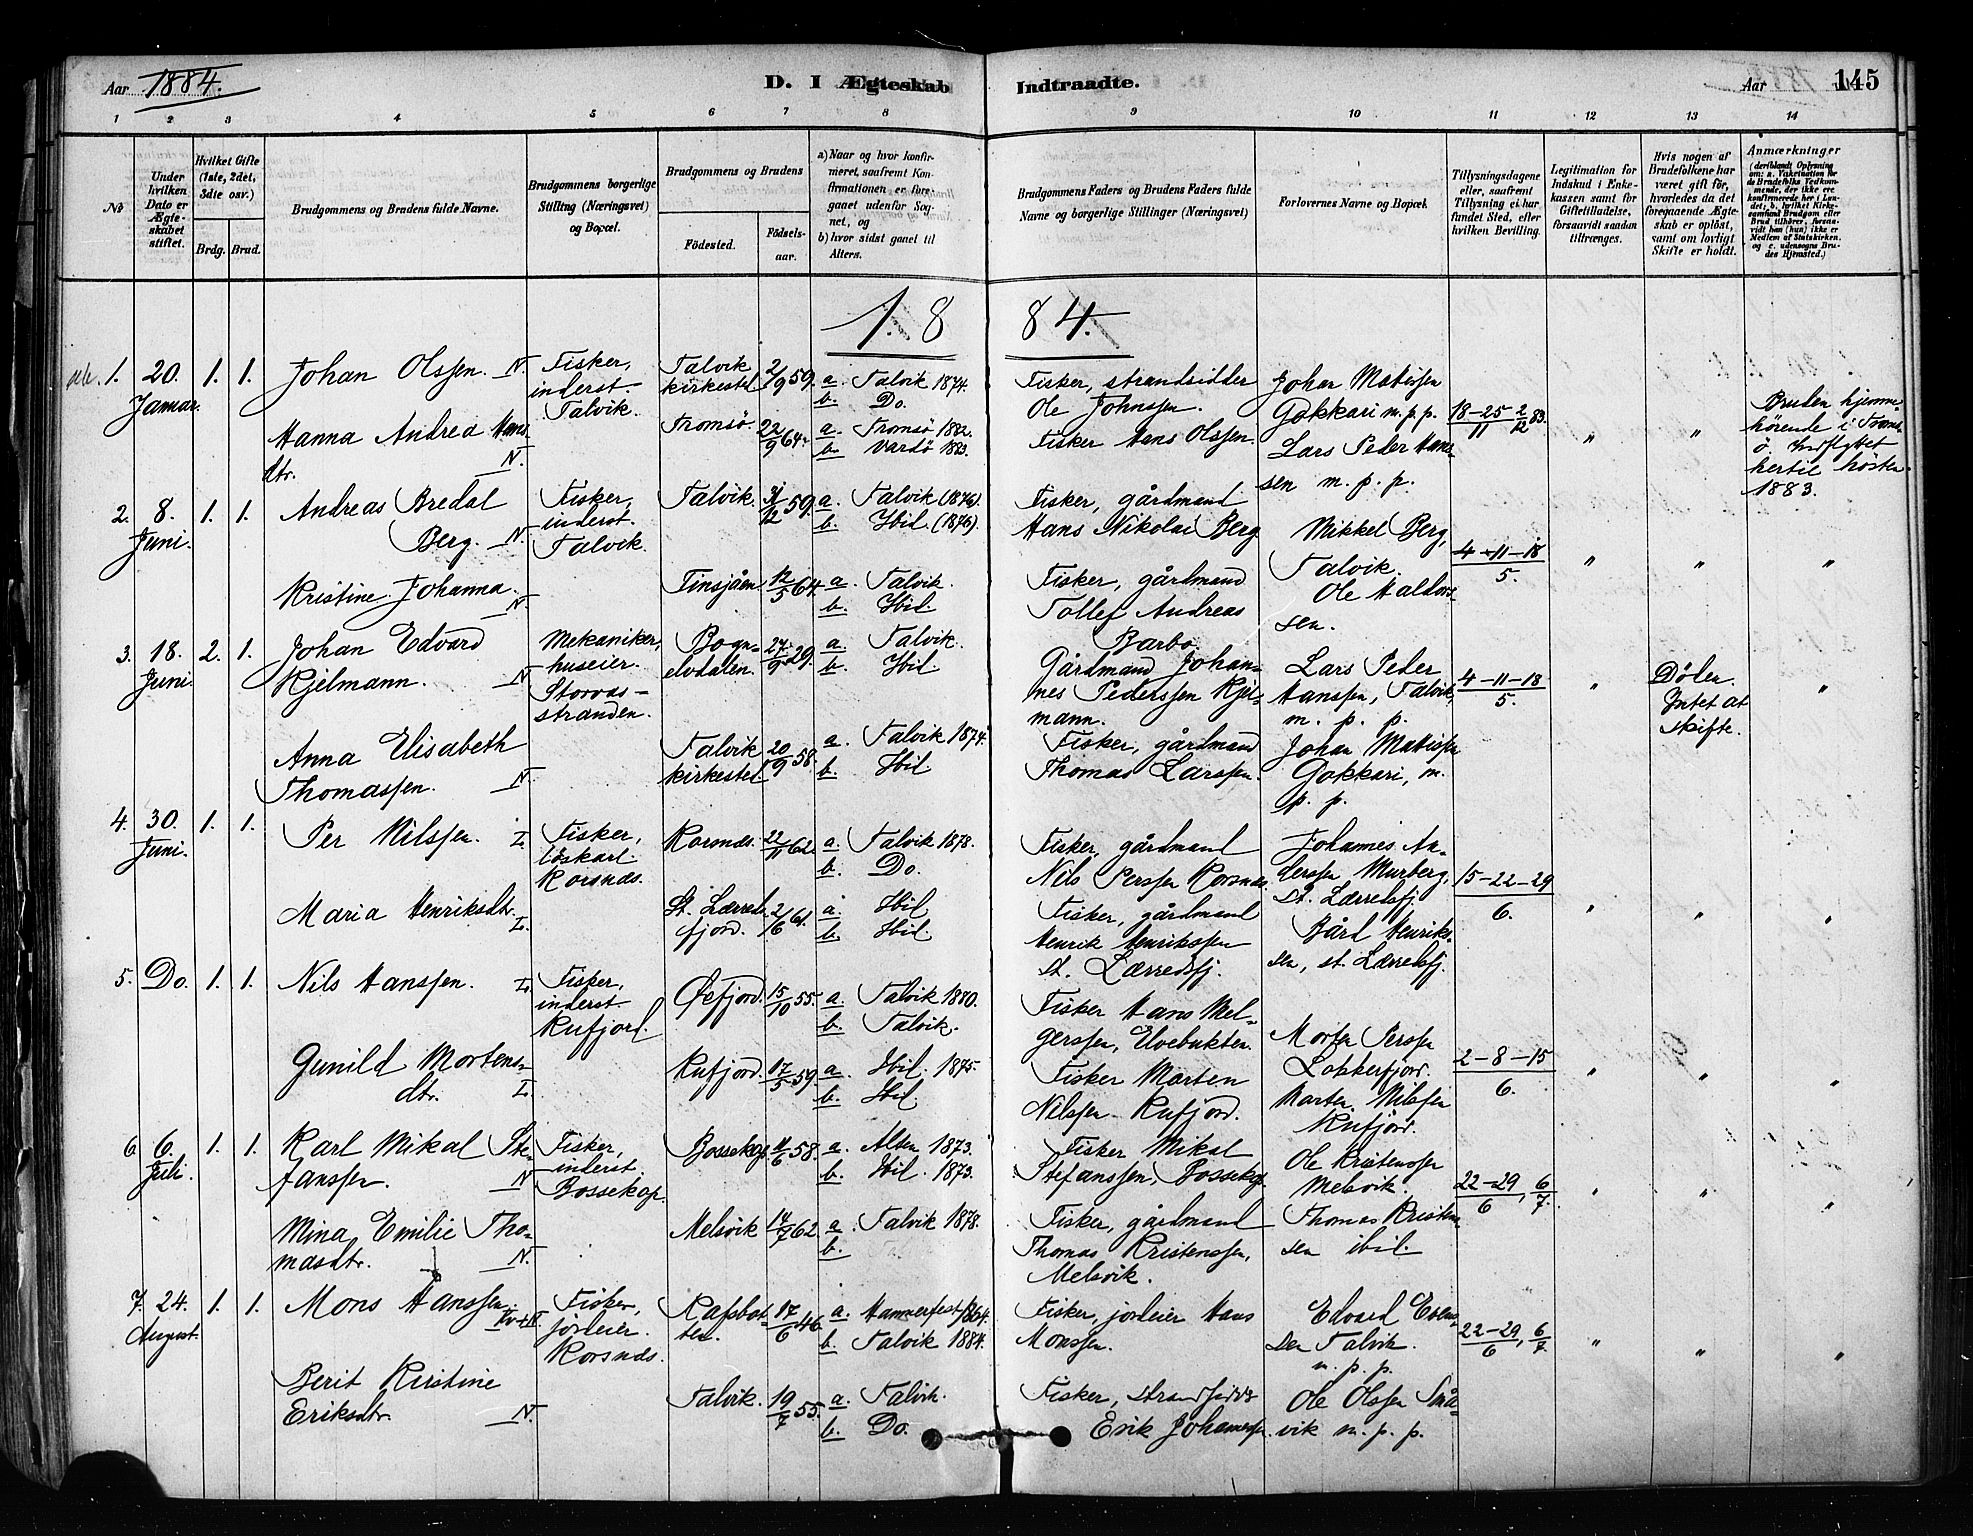 Aar 1884.
D. I Ægteskab Indtraadte.
Aar 145
1 2 3 4 5 6 7 8 9 10 11 12 13 14
No
Under hvilken Dato er Ægteskabet stiftet.
Hvilket Gifte (1ste, 2det, 3die osv.)
Brdg. Brud.
Brudgommens og Brudens fulde Navne.
Brudgommens borgerlige Stilling (Næringsvei) og Bopæl.
Brudgommens og Brudens
Födested.
Födsels-aar.
a) Naar og hvor konfirmeret, saafremt Konfirmationen er foregaaet udenfor Sognet, og
b) hvor sidst gaaet til Alters.
Brudgommens Faders og Brudens Faders fulde Navne og borgerlige Stillinger (Næringsvei)
Forlovernes Navne og Bopæl.
Tillysningsdagene eller, saafremt Tillysning ei har fundet Sted, efter hvilken Bevilling.
Legitimation for Indskud i Enkekassen samt for Giftetilladelse, forsaavidt saadan tiltrænges.
Hvis nogen af Brudefolkene har været gift för, hvorledes da det foregaaende Ægteskab er oplöst, samt om lovligt Skifte er holdt.
Anmærkninger
1 8 84.
1. 20. Januar. 1. 1. Johan Olssen. N. Fisker, inderst Talvik. Talvik kirkested 2/9 59. a. Talvik 1874. b. Do. Fisker, strandsidder Ole Johnssen. Johan Matissen Gakkari m. p. p. 18-25/11 2/12 83. " " Bruden hjemmehörende i Tromsö. Indflyttet hertil høsten 1883.
Hanna Andrea Hansdtr. N. Tromsø. 22/9 64. a. Tromsö 1882. b. Vardö 1883. Fisker Hans Olssen. Lars Peder Hanssen m. p. p.
2. 8. Juni. 1. 1. Andreas Bredal Berg. N. Fisker, inderst. Talvik. Talvik. 31/12 59. a. Talvik (1876). b. Ibil. (1876). Fisker, gårdmand Hans Nikolai Berg Mikkel Berg, Talvik. 4-11-18/5. " " "
Kristine Johanna. N. Tinsjåen. 12/5 64. a. Talvik. b. Ibil. Fisker, gårdmand Tollef Andreas Barbo. Ole Haldorsen.
3. 18. Juni. 2. 1. Johan Edvard Kjelmann. N. Mekaniker, huseier. Storvasstranden. Bognelvdalen. 27/9 29. a. Talvik. b. Ibil Gårdmand Johannes Pederssen Kjelmann. Lars Peder Hanssen, Talvik, m. p. p. 4-11-18/5. " Døden. Intet at skifte. "
Anna Elisabeth Thomassen. N. Talvik kirkested. 20/9 58. a. Talvik 1874. b. Ibil Fisker, gårdmand Thomas Larssen. Johan Matissen Gakkari, m. p. p.
4. 30. Juni. 1. 1. Per Nilssen. L. Fisker, löskarl. Korsnæs. Korsnæs. 22/11 62. a. Talvik 1878. b. Do. Fisker, gårdmand Nils Perssen Korsnæs. Johannes Anderssen Murberg, St. Lærredsfj. 15-22-29/6. " " "
Maria Henriksdtr. L. St. Lærredsfjord. 2/6 61. a. Ibil b. Ibil. Fisker, gårdmand Henrik Henrikssen St. Lærredsfj. Bård Henrikssen, st. Lærredsfj.
5. Do. 1. 1. Nils Hanssen. L. Fisker, inderst. Kufjord. Øxfjord. 15/10 55. a. Talvik 1880. b. Talvik. Fisker Hans Melgerssen, Elvebukten. Morten Perssen Lokkerfjor. 2-8-15/6. " " "
Gunild Mortensdtr. L. Kufjord. 17/5 59. a. Ibil. 1875. b. Ibil. Fisker Morten Nilssen Kufjord. Morten Nilssen Kufjord.
6. 6. Juli. 1. 1. Karl Mikal Stefanssen. N. Fisker, inderst. Bossekop. Bossekop. 11/6 58. a. Alten 1873. b. Ibil. 1873. Fisker Mikal Stefanssen, Bossekop. Ole Kristenssen Melsvik. 22-29/6, 6/7. " " "
Mina Emilie Thomasdtr. N. Melsvik 14/7 62. a. Talvik 1878. b. Fisker, gårdmand Thomas Kristenssen, Melsvik. Thomas Kristenssen ibil.
7. 24. August. 1. 1. Mons Hanssen. Fisker, jordeier. Korsnæs. Rafsbotten. 17/6 46. a. Hammerfest 1864. b. Talvik 1884. Fisker, jordeier Hans Monssen. Edvard Evensen Talvik. m. p. p. 22-29/6, 6/7. " " "
Berit Kirstine Eriksdtr. N. Talvik. 19/7 55. a. Talvik. b. Do. Fisker, strandsidder Erik Johannessen. Ole Olssen Småvik m. p. p.